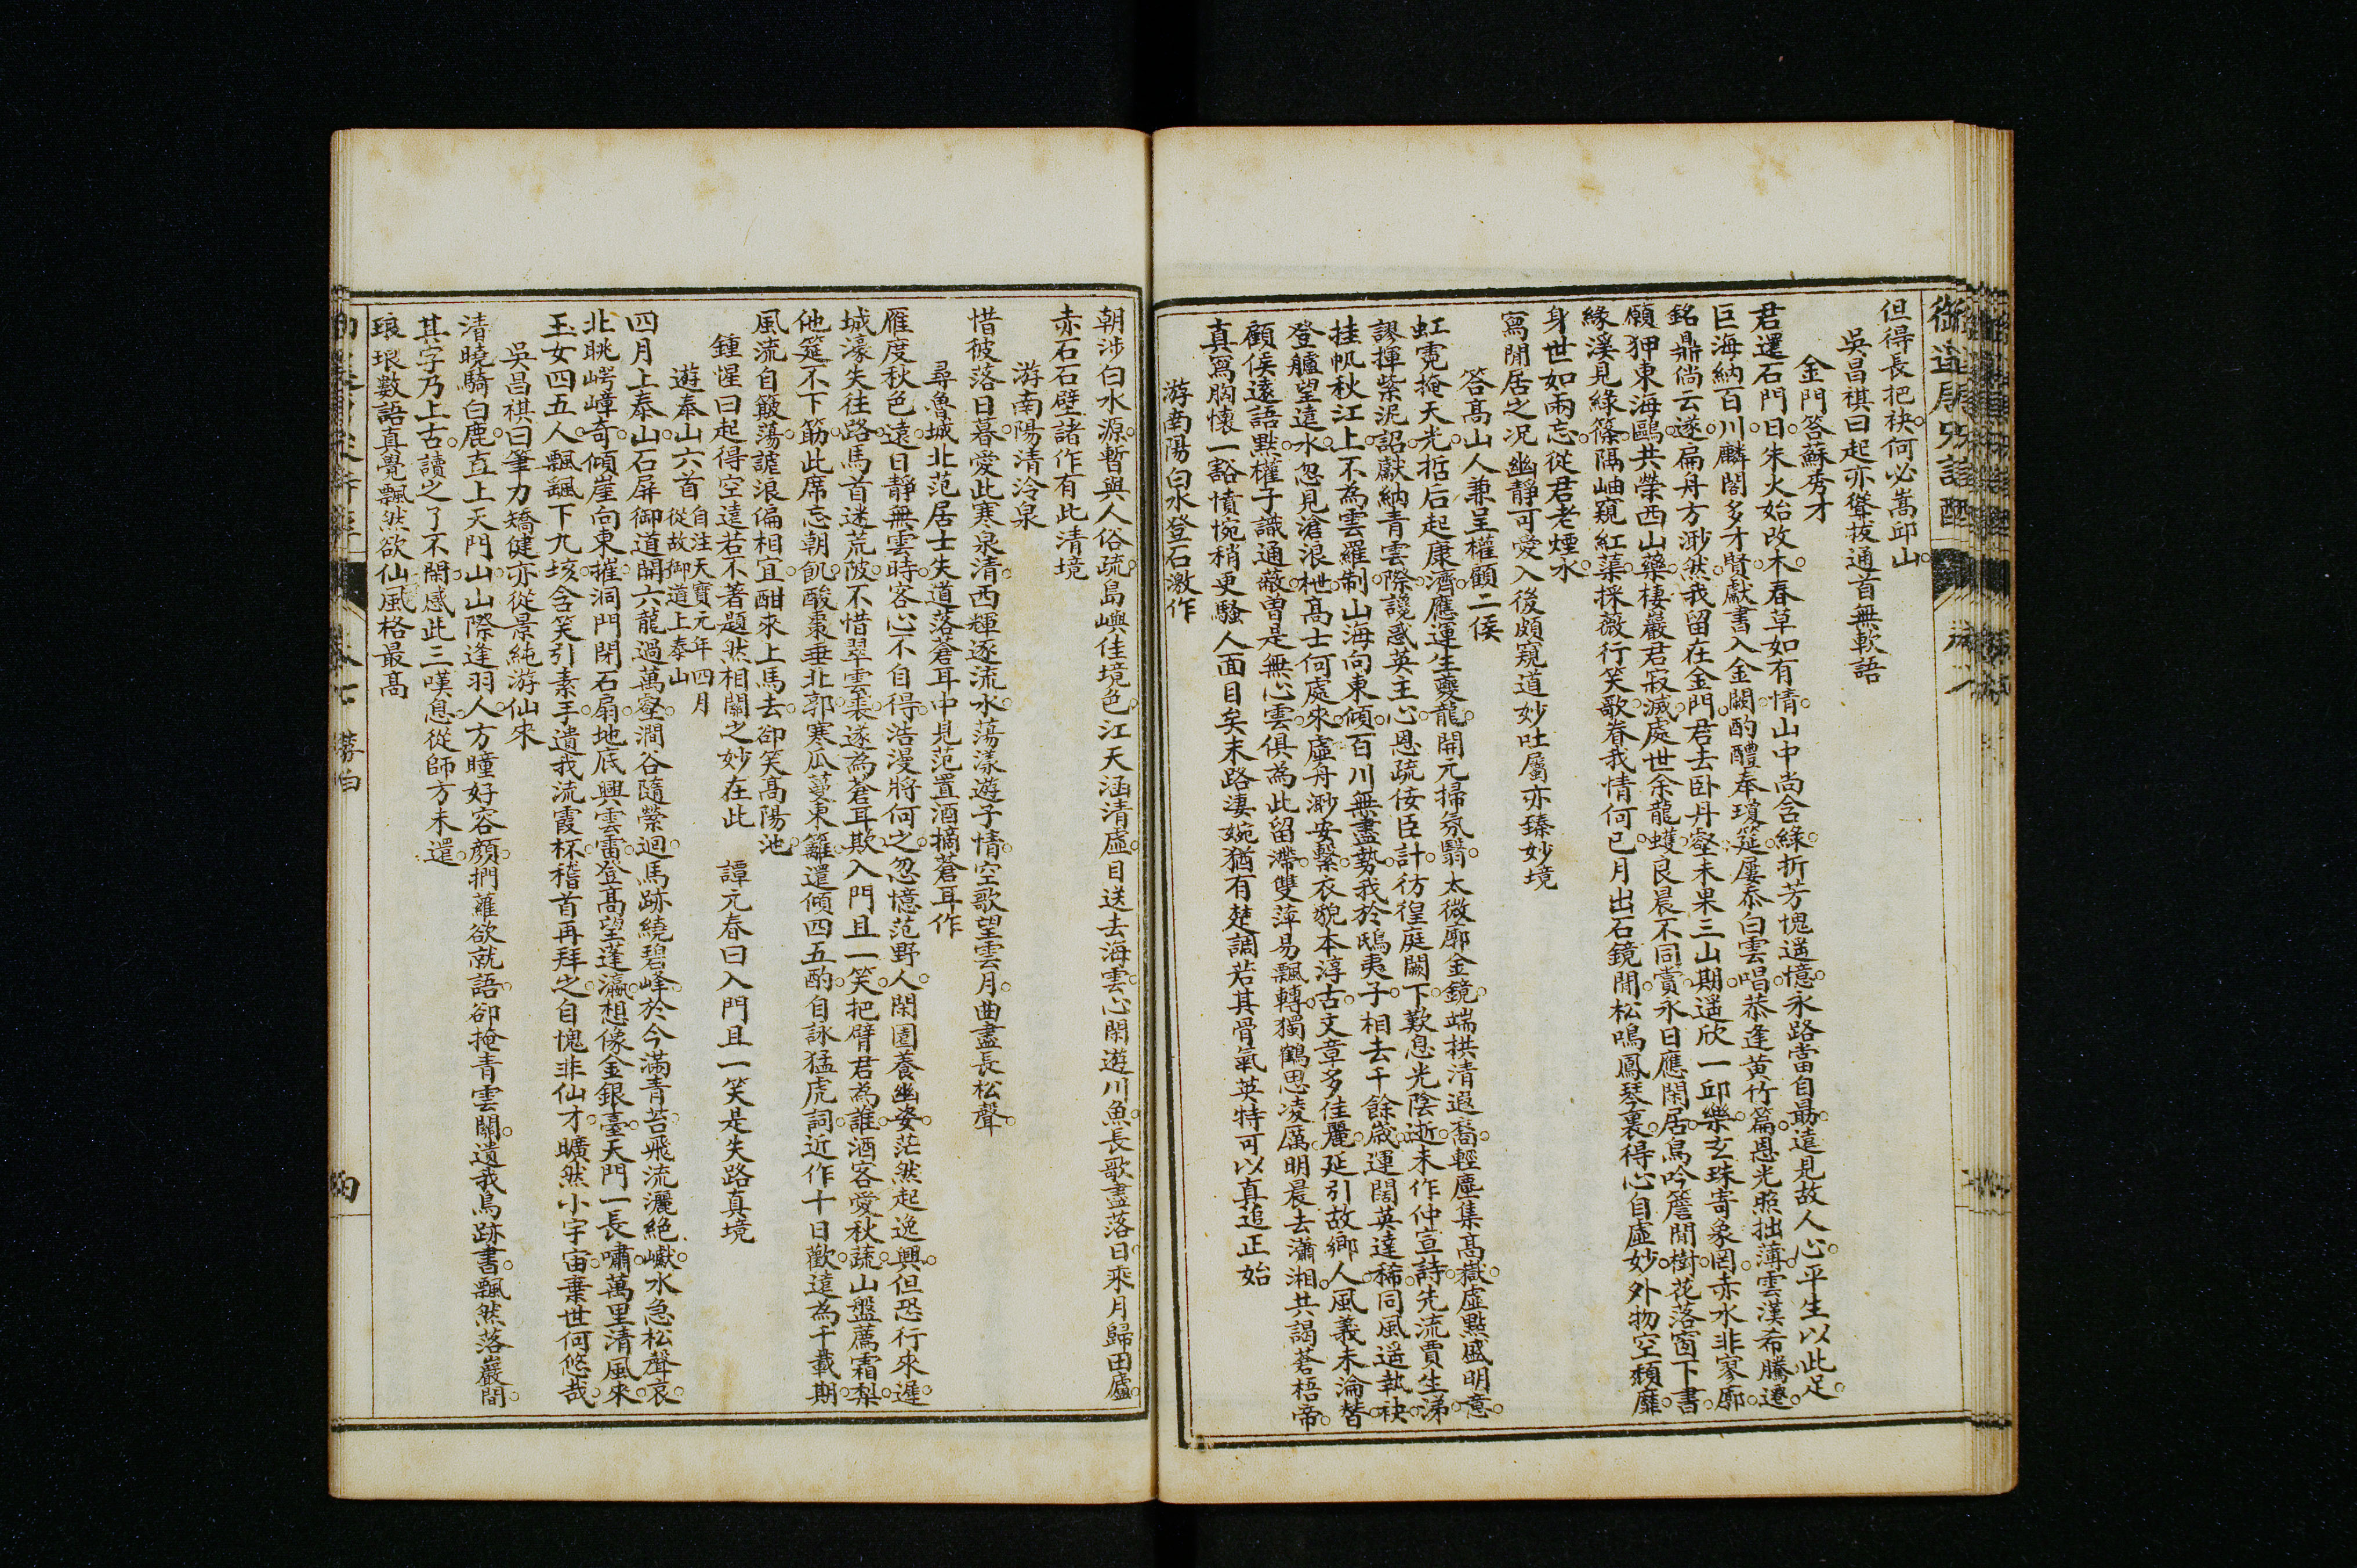 但得長把袂何必嵩邱山
吳昌祺曰起亦聳拔通首無軟語
金門答蘇秀才
君還石門日朱火始改木春草如有情山中尚含綠折芳愧遥憶永路當自勗遠見故人心平生以此足
巨海納百川麟閣多才賢獻書入金闕酌醴奉瓊筵屢忝白雲唱恭逢黃竹篇恩光照拙薄雲漢希騰遷
銘鼎倘云遂扁舟方渺然我留在金門君去卧丹壑未果三山期遥欣一邱樂玄珠寄象罔赤水非寥廓
願狎東海鷗共榮西山藥棲巖君寂滅處世余龍蠖良晨不同賞永日應閑居鳥吟簷閒樹花落窗下書
緣溪見綠篠隔岫窺紅蕖採薇行笑歌眷我情何已月出石鏡閒松鳴鳳琴裏得心自虛妙外物空頹靡
身世如兩忘從君老煙水
寫閒居之况幽靜可愛入後頗窺道妙吐屬亦臻妙境
答高山人兼呈權顧二侯
虹霓掩天光哲后起康濟應運生夔龍開元掃氛翳太微廓金鏡端拱清遐裔輕塵集高嶽虛點盛明意
謬揮紫泥詔獻納青雲際讒惑英主心恩疏佞臣計彷徨庭闕下歎息光陰逝未作仲宣詩先流賈生涕
挂帆秋江上不為雲羅制山海向東傾百川無盡勢我於鴟夷子相去千餘歲運闊英達稀同風遥執袂
登艫望遠水忽見滄浪枻高士何處來虛舟渺安繫衣貌本淳古文章多佳麗延引故鄉人風義未淪替
顧侯遠語默權子識通蔽曽是無心雲俱為此留滯雙萍易飄轉獨鶴思凌厲明晨去瀟湘共謁蒼梧帝
真寫胸懷一豁憤惋稍更騷人面目矣末路淒婉猶有楚調若其骨氣英特可以真追正始
游南陽白水登石激作
朝涉白水源暫與人俗疏島嶼佳境色江天涵清虛目送去海雲心閑遊川魚長歌盡落日乘月歸田廬
赤石石壁諸作有此清境
游南陽清泠泉
惜彼落日暮愛此寒泉清西輝逐流水蕩漾遊子情空歌望雲月曲盡長松聲
尋魯城北范居士失道落蒼耳中見范置酒摘蒼耳作
雁度秋色遠日靜無雲時客心不自得浩漫將何之忽憶范野人閑園養幽姿茫然起逸興但恐行來遲
城濠失往路馬首迷荒陂不惜翠雲裘遂為蒼耳欺入門且一笑把臂君為誰酒客愛秋蔬山盤薦霜梨
他筵不下筯此席忘朝飢酸棗垂北郭寒瓜蔓東籬還傾四五酌自詠猛虎詞近作十日歡遠為千載期
風流自簸蕩謔浪偏相宜酣來上馬去卻笑高陽池
鍾惺曰起得空遠若不著題然相關之妙在此　譚元春曰入門且一笑是失路真境
遊泰山六首自注天寶元年四月從故御道上泰山
四月上泰山石屏御道開六龍過萬壑澗谷隨縈迴馬跡繞碧峰於今滿青苔飛流灑絶巘水急松聲哀
北眺崿嶂奇傾崖向東摧洞門閉石扇地底興雲雷登高望蓬瀛想像金銀臺天門一長嘯萬里清風來
玉女四五人飄颻下九垓含笑引素手遺我流霞杯稽首再拜之自愧非仙才曠然小宇宙棄世何悠哉
吳昌祺曰筆力矯健亦從景純游仙來
清曉騎白鹿直上天門山山際逢羽人方瞳好容顏捫蘿欲就語卻掩青雲關遺我鳥跡書飄然落巖間
其字乃上古讀之了不閑感此三嘆息從師方未還
琅琅數語真覺飄然欲仙風格最高